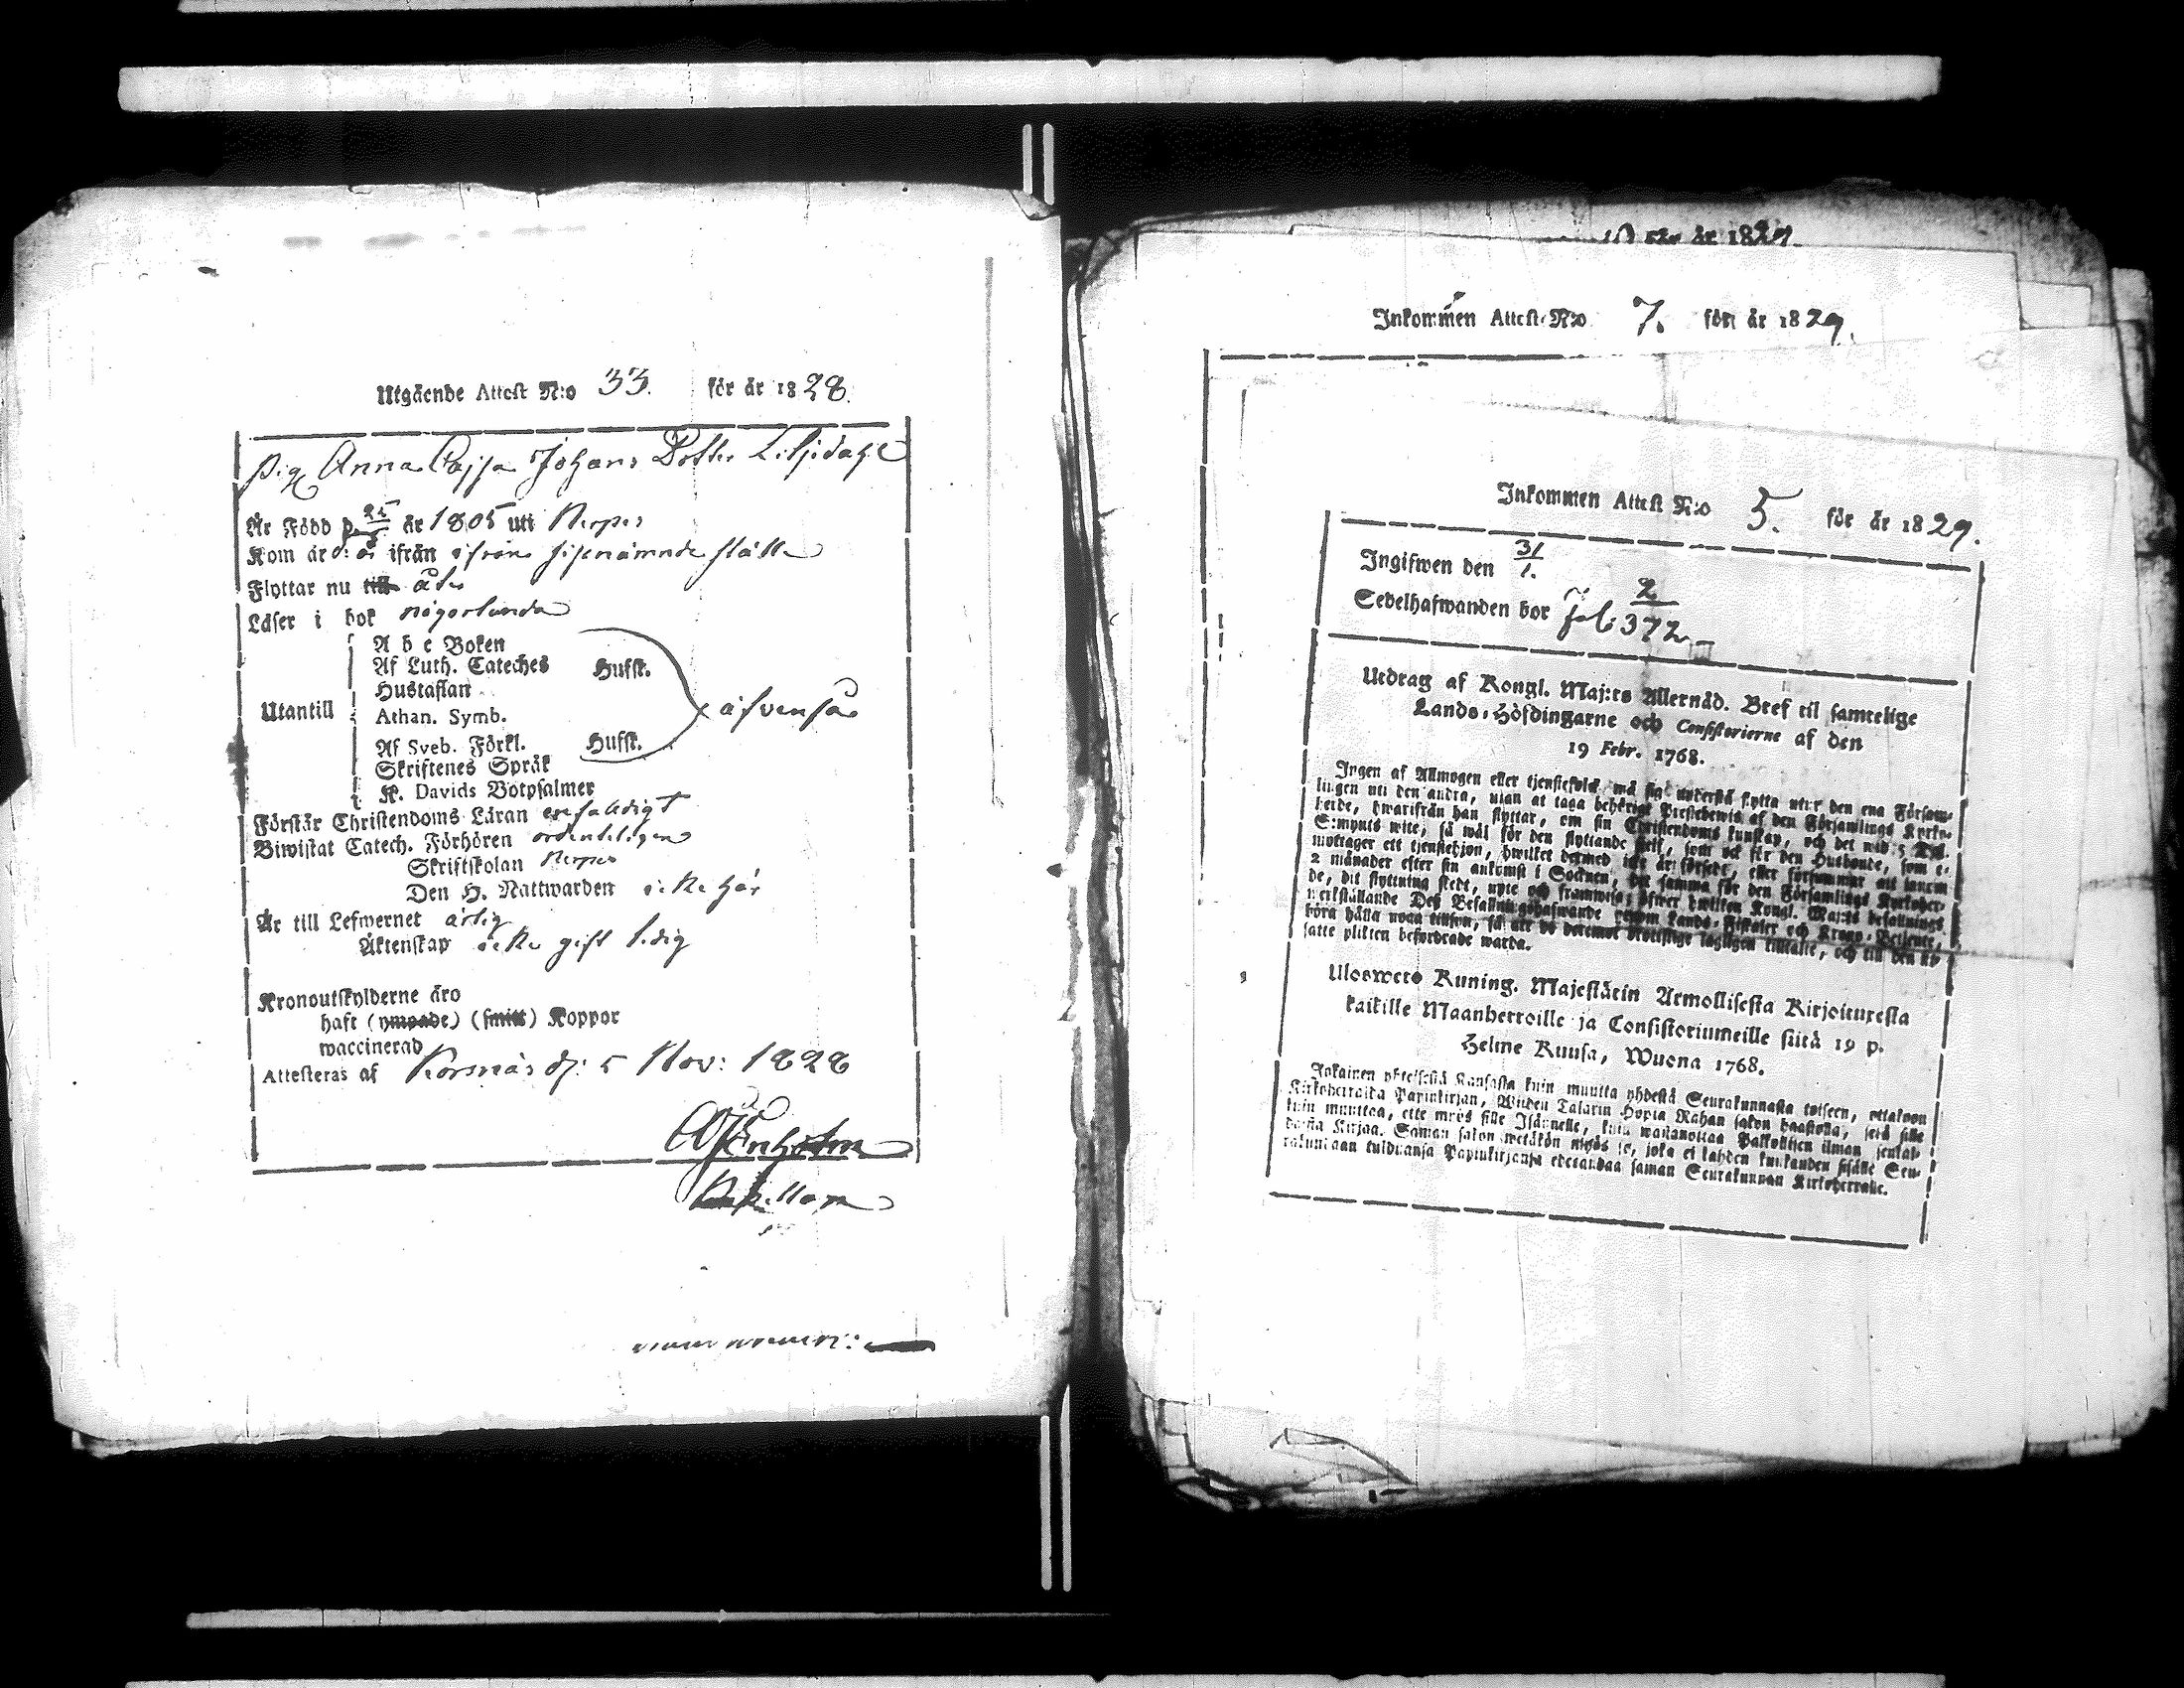 Utgående Attest N:o 33. för år 1828.
Pig Anna Cajsa Johans Dotter Liljedahl
Är Född d 25 år 1805 uti Kerpes
Kom år d: å ifrån ifrån sistnämnde ställe
Flyttar nu till åter
Läser i bok någorlunda
A b c Boken
Af Luth. Cateches Hufst.
Hustaflan
Utantill
Athan. Symb.
äfvenså
Af Sveb. Förkl. Hufst.
Skriftenes Språk
K. Davids Botpsalmer
Förstår Christendoms Läran enfaldigt
Biwistat Catech. Förhören ordenteligen
Skriftskolan
Den H. Nattwarden icke här
Är till Lefwernet ärlig
Äktenskap icke gift ledig
Kronoutskylderne äro
haft (ympade) (smitt) Koppor
waccinerad
Attesteras af Korsnäs d: 5 Nov: 1828
Kapellan
för år 1829.
Inkommen Attest N:o 7. för år 1829.
Inkommen Attest N:o 5. för år 1829.
Ingifwen den 31/1.
Sedelhafwanden bor fol. 372
2
Utdrag af Kongl. Maj:ts Allernåd. Bref til samtelige
Lands-Höfdingarne och Consistorierne af den
19 Febr. 1768.
Ingen af Allmogen eller tjenstefolck må sig understå flytta utur den ena Försam-
lingen uti den andra, utan at taga behörigt Prestebewis af den Församlings Kyrko-
herde, hwarifrån han flyttar, om sin Christendoms kunskap, och det wid 5 Dal.
S:mynts wite, så wäl för den flyttande sielf, som ock för den Husbonde, som e-
mottager ett tjenstehjon, hwilket dermed icke är försedt, eller försummar att innom
2 månader efter sin ankomst i Socknen, det samma för den Församlings Kyrkoher-
de, dit flyttning skedt, upte och framwisa; öfwer hwilken Kongl. Maj:ts befallnings
werkställande Deß Befallningshafwande genom Lands-Fiskaler och Krono-Betjente,
böra hålla noga tillsyn, så att de deremot brottslige lagligen tilltalte, och till den ut-
satte plikten befordrade warda.
Ulosweto Kuning. Majestätin Armollisesta Kirjoituxesta
kaikille Maanherroille ja Consistoriumeille siitä 19 p.
Helme Kuusa, Wuona 1768.
Jokainen yhteisestä Kansasta kuin muutta yhdestä Seurakunnasta toiseen, ottakoon
Kirkoherralda Papinkirjan, Wiiden Talarin Hopia Rahan sakon haastolla, sekä sille
kuin muuttaa, ette myös sille Isännelle, kuin wastanottaa Palkollisen ilman senkal-
daista Kirjaa. Saman sakon wetäkön myös se, joka ei kahden kuukauden sisälle Seu-
rakuntaan tulduansa Papinkirjansa edesandaa saman Seurakunnan Kirkoherralle.